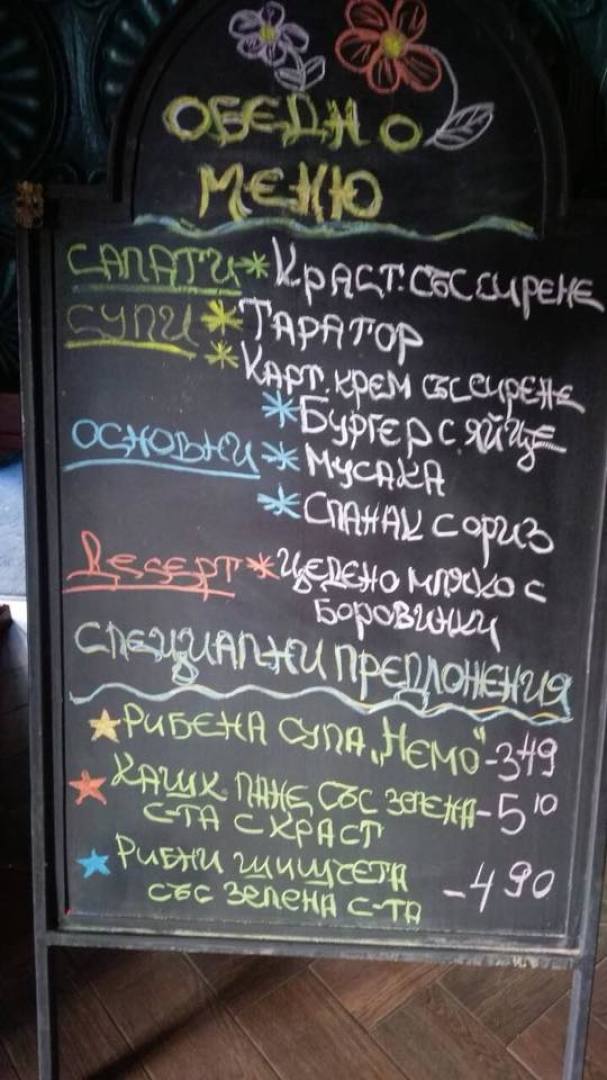 ОБЕДНО
МЕНЮ
САЛАТИ * КРАСТ. СЪС СИРЕНЕ
СУПИ * ТАРАТОР
* КАРТ. КРЕМ СЪС СИРЕНЕ
* БУРГЕР С ЯЙЦЕ
ОСНОВНИ * МУСАКА
* СПАНАК С ОРИЗ
ДЕСЕРТ * ЦЕДЕНО МЛЯКО С
БОРОВИНКИ
СПЕЦИАЛНИ ПРЕДЛОЖЕНИЯ
★ РИБЕНА СУПА „НЕМО“ - 349
★ КАШК. ПАНЕ СЪС ЗЕЛЕНА - 5 10
С-ТА С КРАСТ
★ РИБНИ ШИШЧЕТА - 490
СЪС ЗЕЛЕНА С-ТА